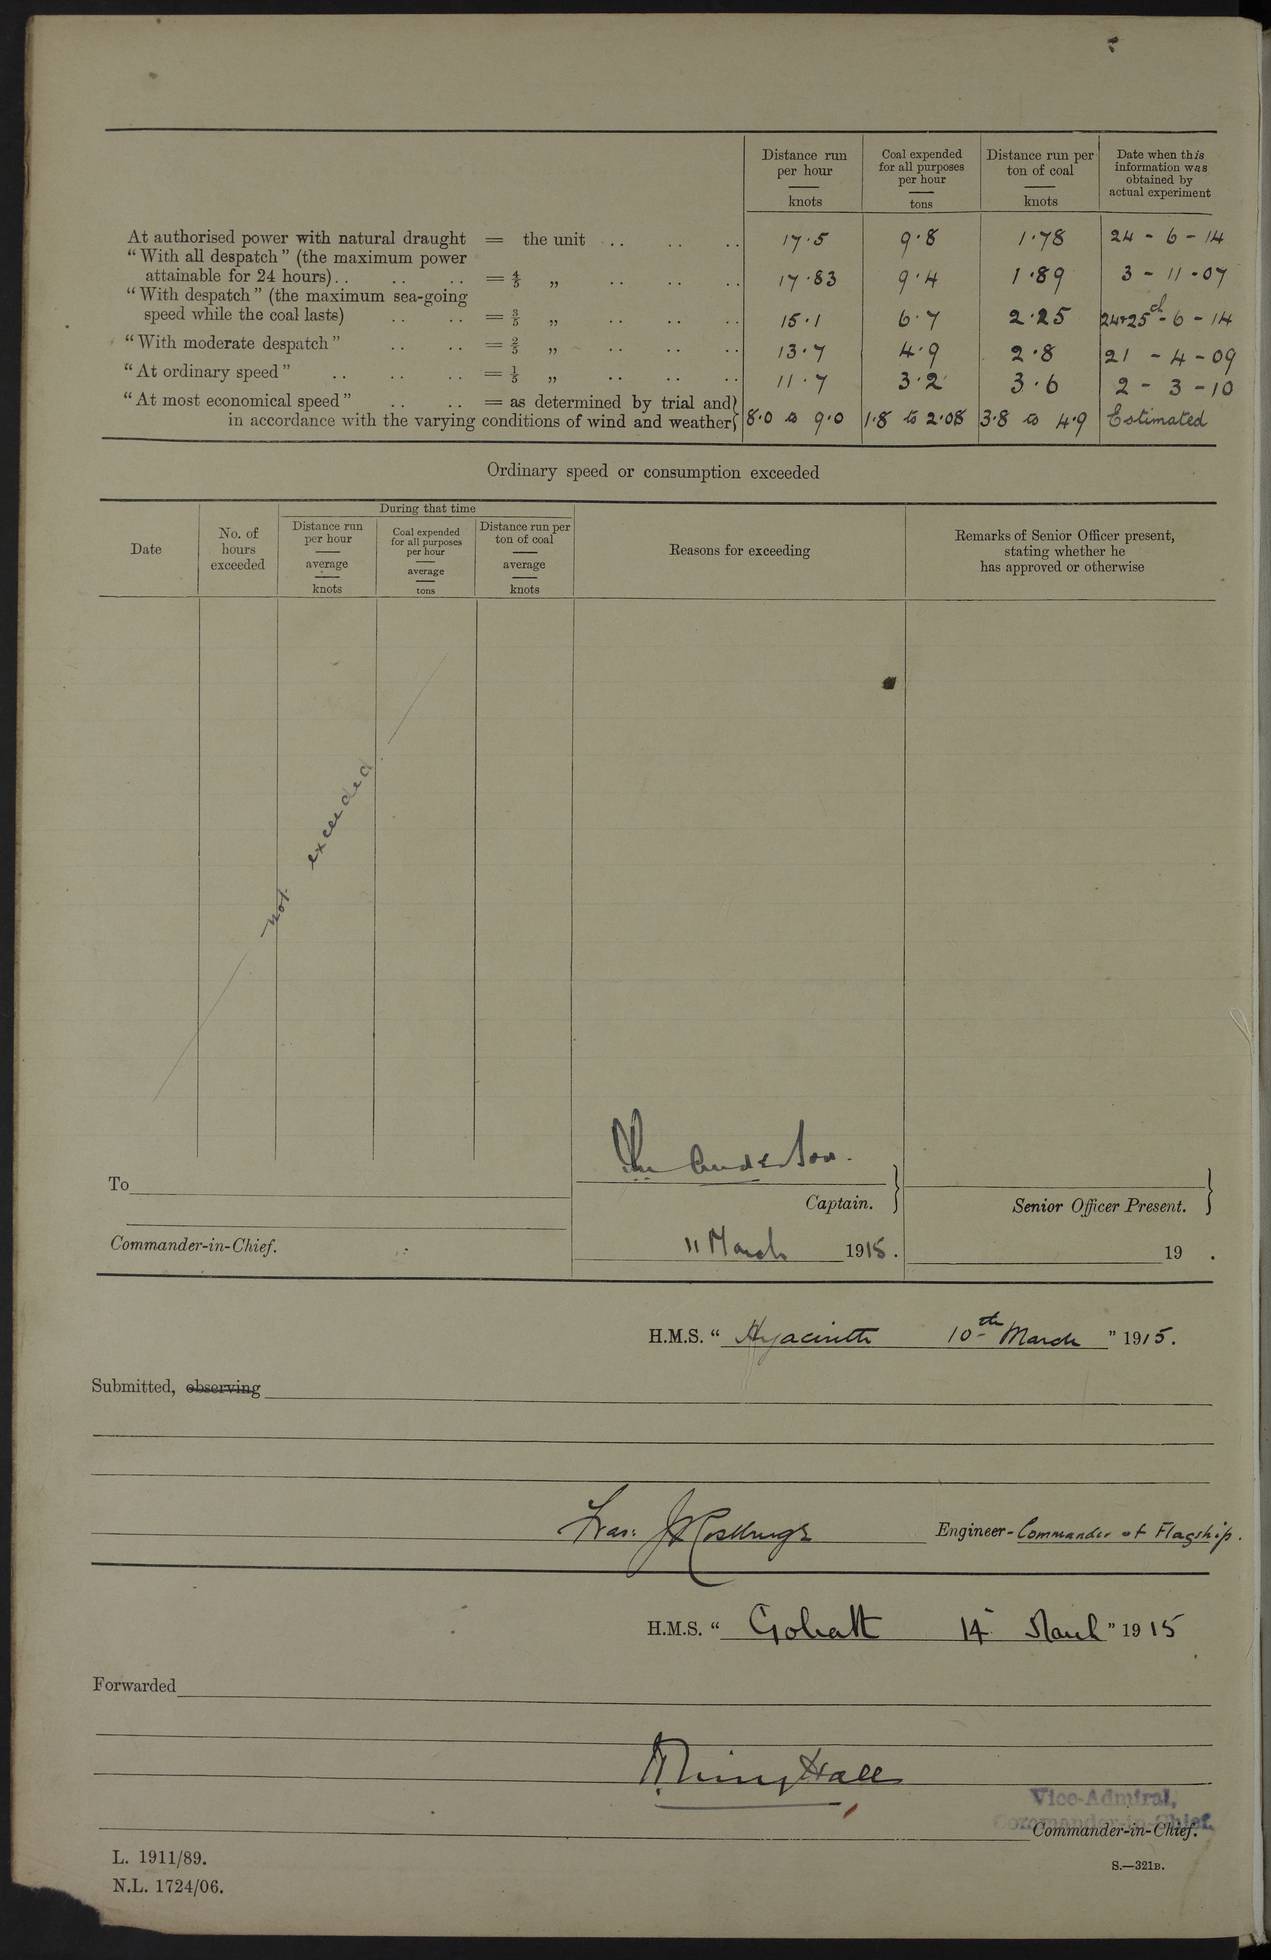 Distance run per hour knots
Coal expended for all purposes per hour tons
Distance run per ton of coal knots
Date when this information was obtained by actual experiment
At authorised power with natural draught = the unit .. .. .. 17·5 9·8 1·78 24 - 6 - 14
“With all despatch” (the maximum power
attainable for 24 hours) .. .. .. = 4/5 „ .. .. .. 17·83 9·4 1·89 3 - 11 - 07
“With despatch” (the maximum sea-going
speed while the coal lasts) .. .. = 3/5 „ .. .. .. 15·1 6·7 2·25 24&25th - 6 - 14
“With moderate despatch” .. .. = 2/5 „ .. .. .. 13·7 4·9 2·8 21 - 4 - 09
“At ordinary speed” .. .. .. = 1/5 „ .. .. .. 11·7 3·2 3·6 2 - 3 - 10
“At most economical speed” .. .. = as determined by trial and
in accordance with the varying conditions of wind and weather 8·0 to 9·0 1·8 to 2·08 3·8 to 4·9 Estimated
Ordinary speed or consumption exceeded
Date
No. of hours exceeded
During that time
Distance run per hour average knots
Coal expended for all purposes per hour average tons
Distance run per ton of coal average knots
Reasons for exceeding
Remarks of Senior Officer present, stating whether he has approved or otherwise
not exceeded
Anderson.
To
Captain.
Senior Officer Present.
Commander-in-Chief.
11 March 1915.
19 .
H.M.S. “Hyacinth 10th March ” 1915.
Submitted, observing
Fras: Engineer-Commander of Flagship.
H.M.S. “ Goliath 14 March ” 1915
Forwarded
Hall
Vice-Admiral,
Commander-in-Chief.
Commander-in-Chief.
L. 1911/89.
N.L. 1724/06.
S.—321B.